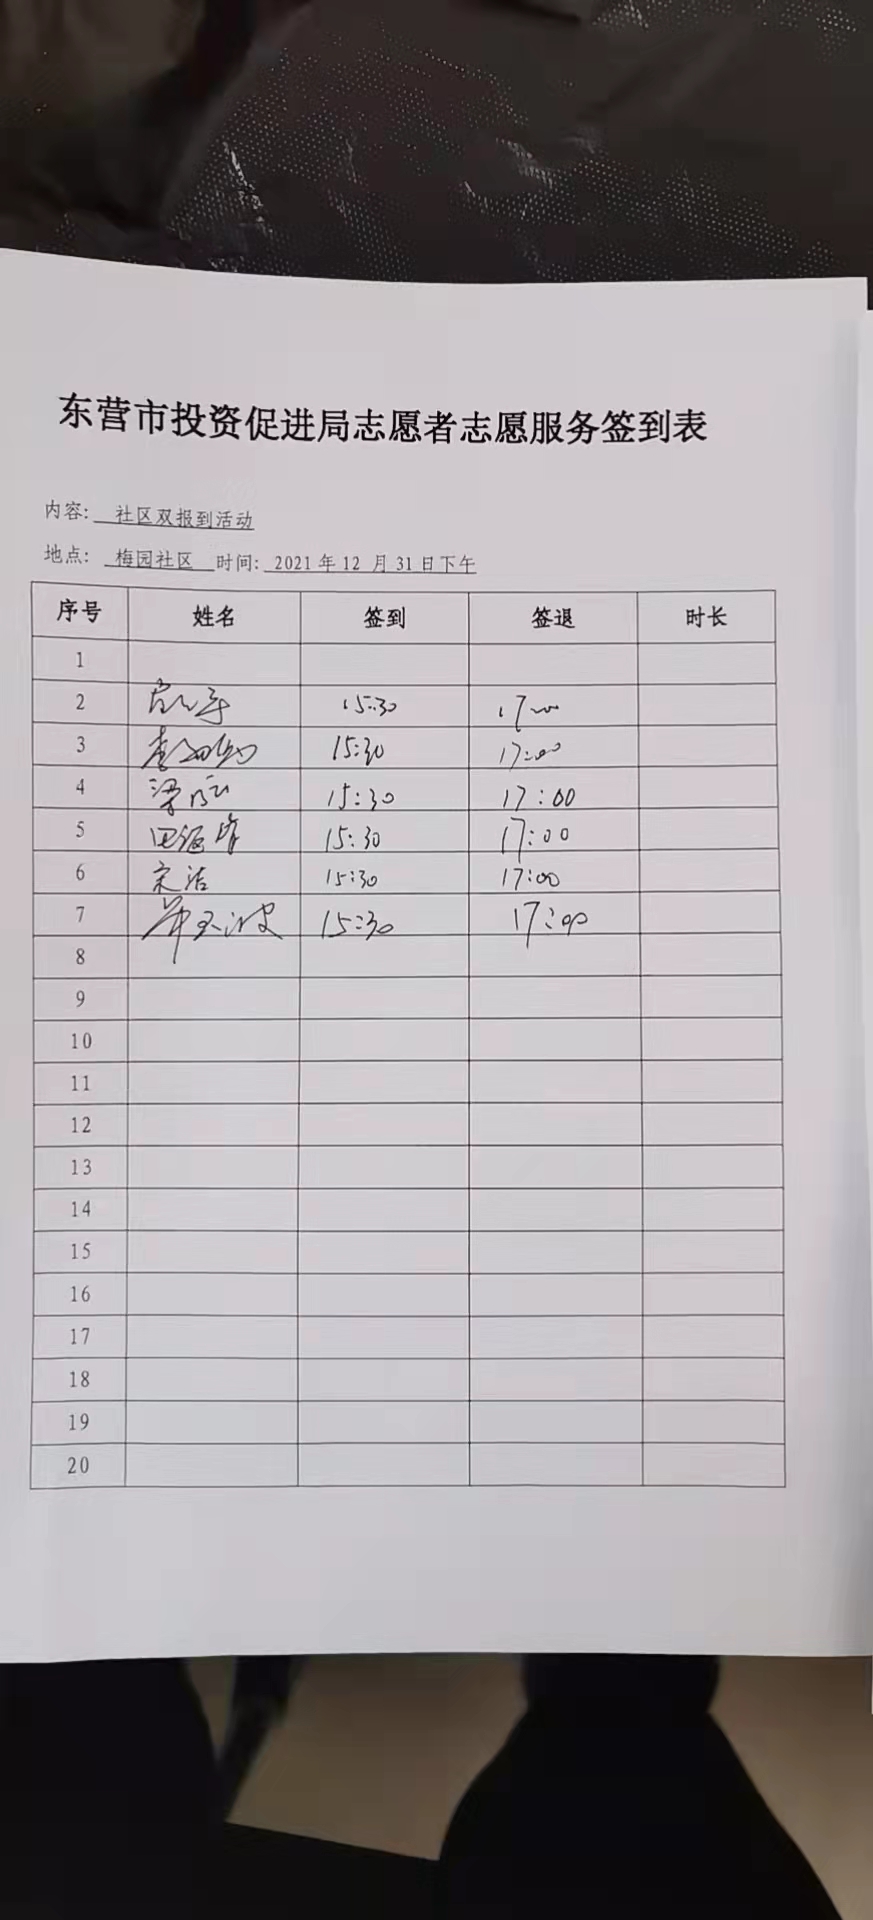 东营市投资促进局志愿者志愿服务签到表
内容: 社区双报到活动
地点: 梅园社区 时间: 2021年12月31日下午
序号 姓名 签到 签退 时长
1
2 15:30 17:00
3 15:30 17:00
4 15:30 17:00
5 15:30 17:00
6 宋洁 15:30 17:00
7 15:30 17:00
8
9
10
11
12
13
14
15
16
17
18
19
20